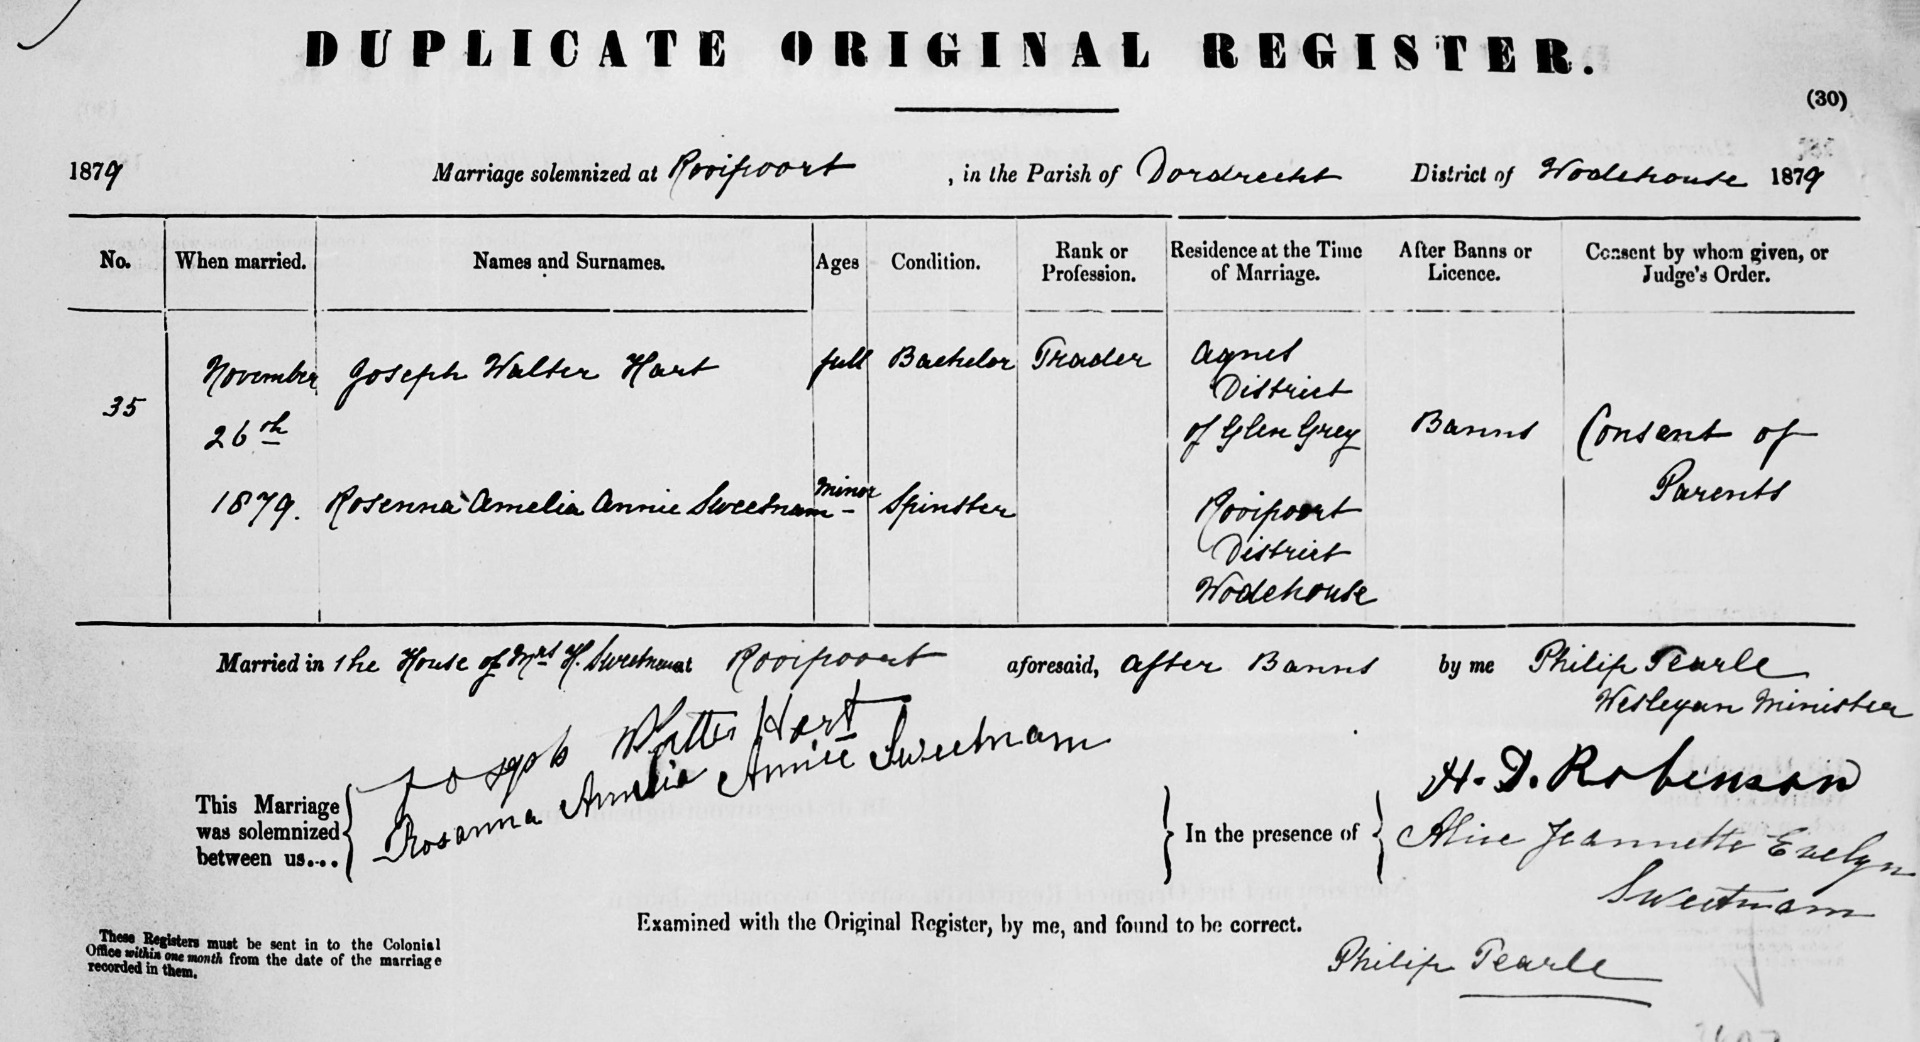 DUPLICATE ORIGINAL REGISTER.
(30)
1879 Marriage solemnized at Rooipoort, in the Parish of Dordrecht District of Wodehouse 1879
No. When married. Names and Surnames. Ages Condition. Rank or Profession. Residence at the Time of Marriage. After Banns or Licence. Consent by whom given, or Judge's Order.
35
November
26th
1879.
Joseph Walter Hart full Bachelor Trader
Agnes
District
of Glen Grey
Rosenna Amelia Annie Sweetnam Minor Spinster
Rooipoort
District
Wodehouse
Banns
Consent of
Parents
Married in the House of Mrs H. Sweetnam at Rooipoort aforesaid, after Banns by me Philip Tearle
Wesleyan Minister
This Marriage
was solemnized
between us....
Joseph Walter Hart
Rosanna Amelia Annie Sweetnam
In the presence of
H. D. Robinson
Alice Jeannette Evelyn
Sweetnam
Examined with the Original Register, by me, and found to be correct.
Philip Tearle
These Registers must be sent in to the Colonial
Office within one month from the date of the marriage
recorded in them.